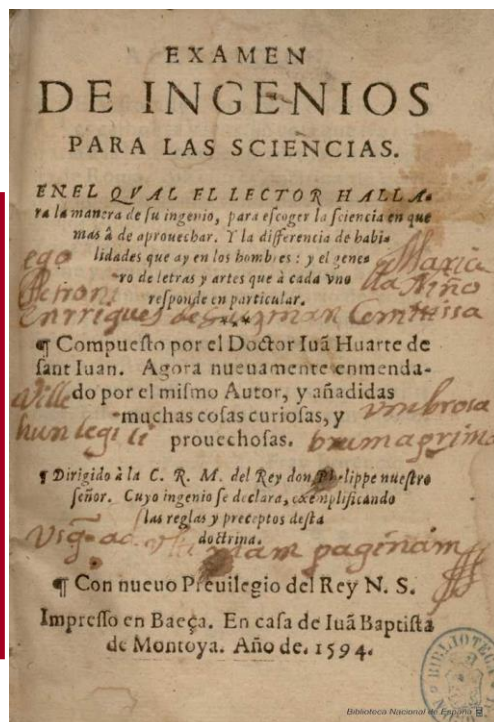 EXAMEN
DE INGENIOS
PARA LAS SCIENCIAS.
EN EL QVAL EL LECTOR HALLA-
ra la manera de su ingenio, para escoger la sciencia en que
mas à de aprouechar. Y la differencia de habi-
lidades que ay en los hombres: y el gene-
ro de letras y artes que à cada vno
responde en particular.
ego Maria
Petroni lla Niño
enrriques de guzman Comitissa
¶ Compuesto por el Doctor Iuã Huarte de
sant Iuan. Agora nueuamente enmenda-
do por el mismo Autor, y añadidas
muchas cosas curiosas, y
prouechosas.
Ville vmbrosa
hun legi li brum a prima
¶ Dirigido à la C. R. M. del Rey don Philippe nuestro
señor. Cuyo ingenio se declara, exemplificando
las reglas y preceptos desta
doctrina.
vsq̃ ad vltimam paginam
¶ Con nueuo Preuilegio del Rey N. S.
Impresso en Baeça. En casa de Iuã Baptista
de Montoya. Año de. 1594.
Biblioteca Nacional de España